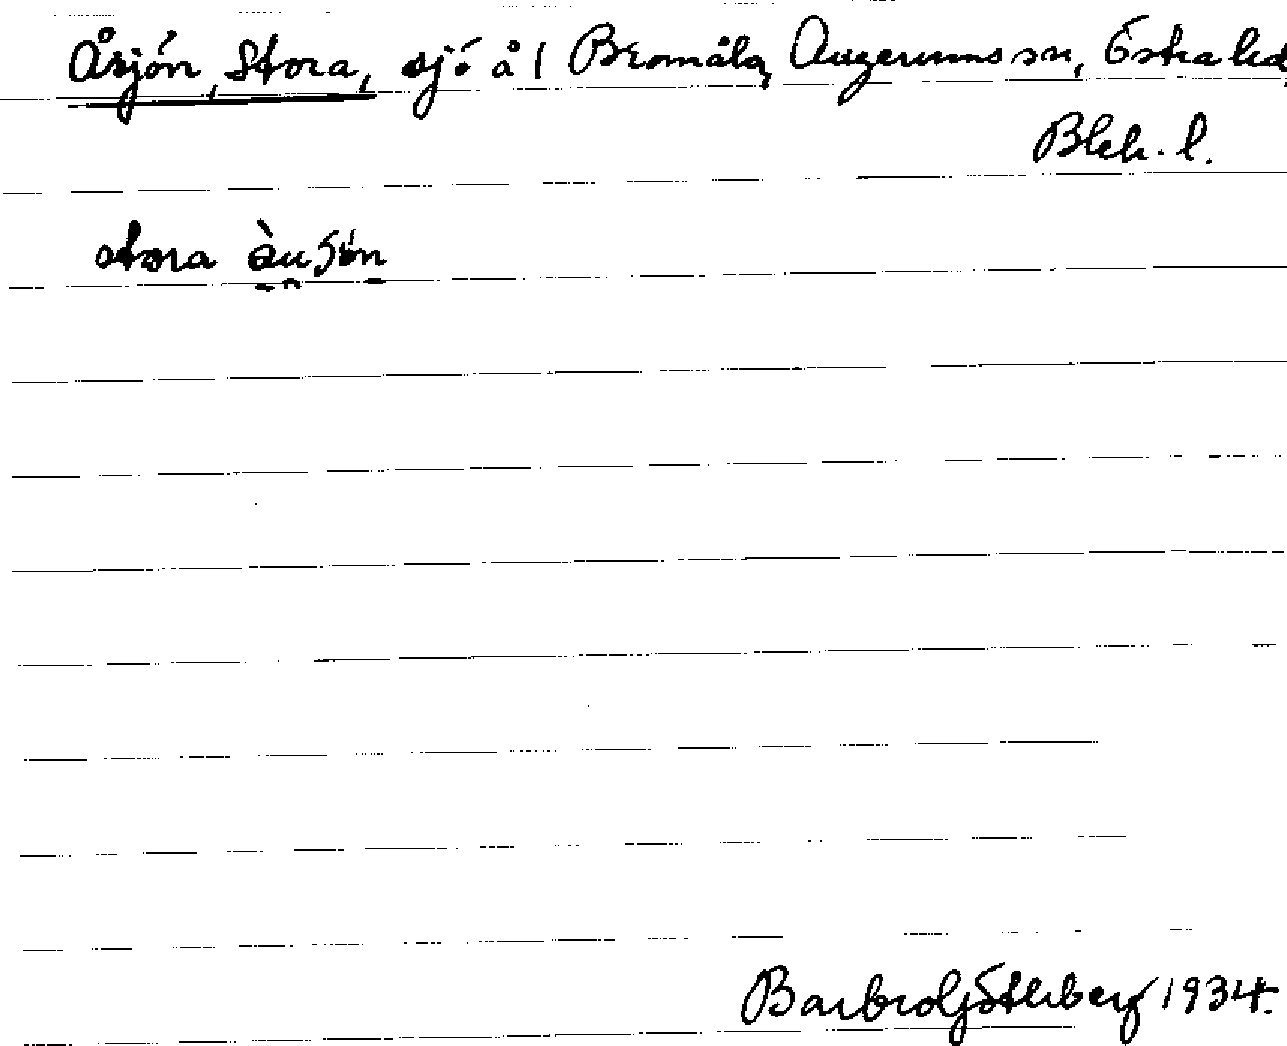 Åsjön, Stora, sjö å 1 Bromåla, Augerums sn, Östra hd
Blek. l.
stora
Barbro Götlberg 1934.